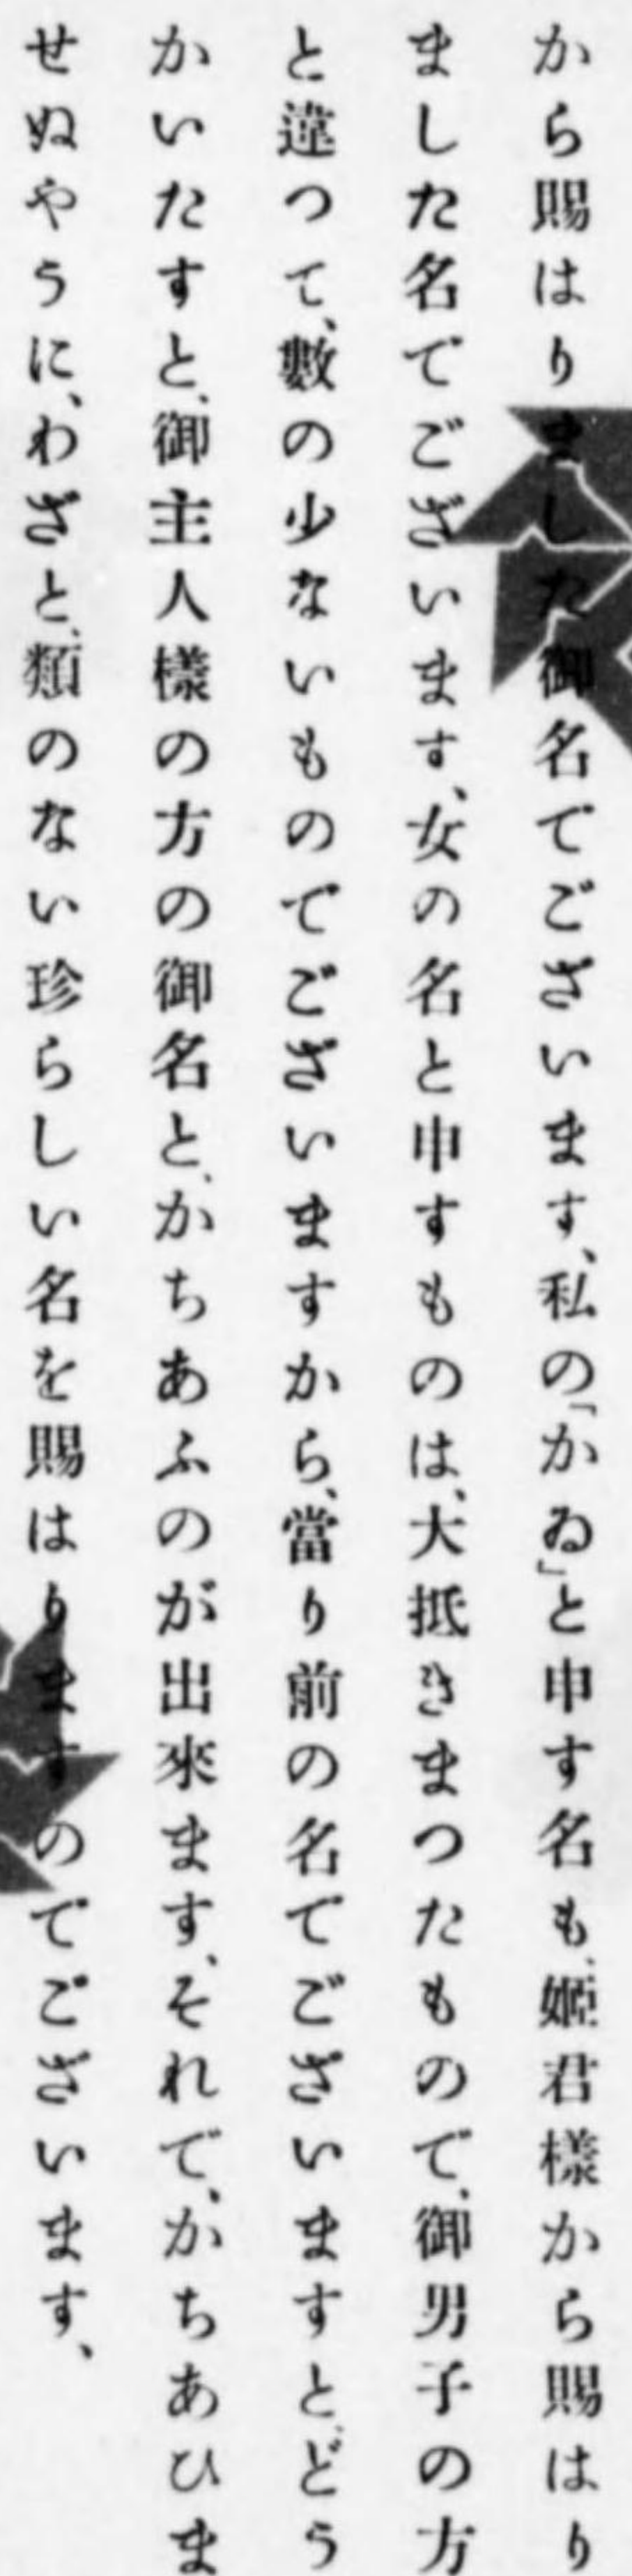 から賜はりました御名でございます、私の「かゐ」と申す名も、姫君樣から賜はり
ました名でございます、女の名と申すものは、大抵きまつたもので、御男子の方
と違つて、數の少ないものでございますから、當り前の名でございますと、どう
かいたすと、御主人樣の方の御名と、かちあふのが出來ます、それで、かちあひま
せぬやうに、わざと、類のない珍らしい名を賜はりますのでございます、